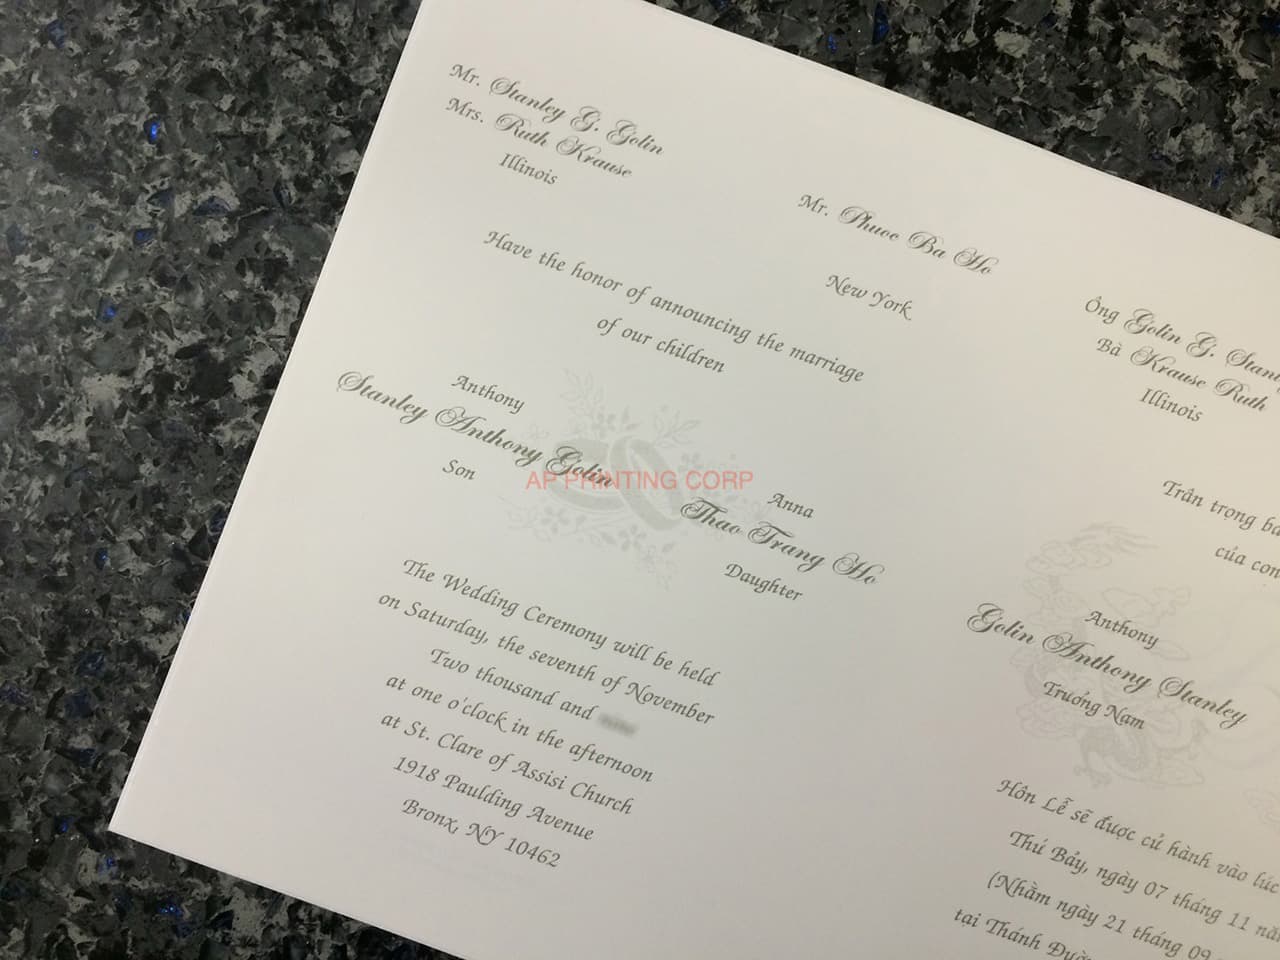 Mr. Stanley G. Golin
Mrs. Ruth Krause
Illinois
Mr. Phuoc Ba Ho
New York
Have the honor of announcing the marriage
of our children
Anthony
Stanley Anthony Golin
Son
Anna
Thao Trang Ho
Daughter
The Wedding Ceremony will be held
on Saturday, the seventh of November
Two thousand and
at one o'clock in the afternoon
at St. Clare of Assisi Church
1918 Paulding Avenue
Bronx, NY 10462
AP PRINTING CORP
Ông Golin G. Stan
Bà Krause Ruth
Illinois
Trân trọng bá
của con
Anthony
Golin Anthony Stanley
Trưởng Nam
Hôn Lễ sẽ được cử hành vào lúc
Thứ Bảy, ngày 07 tháng 11 nă
(Nhằm ngày 21 tháng 09
tại Thánh Đườ